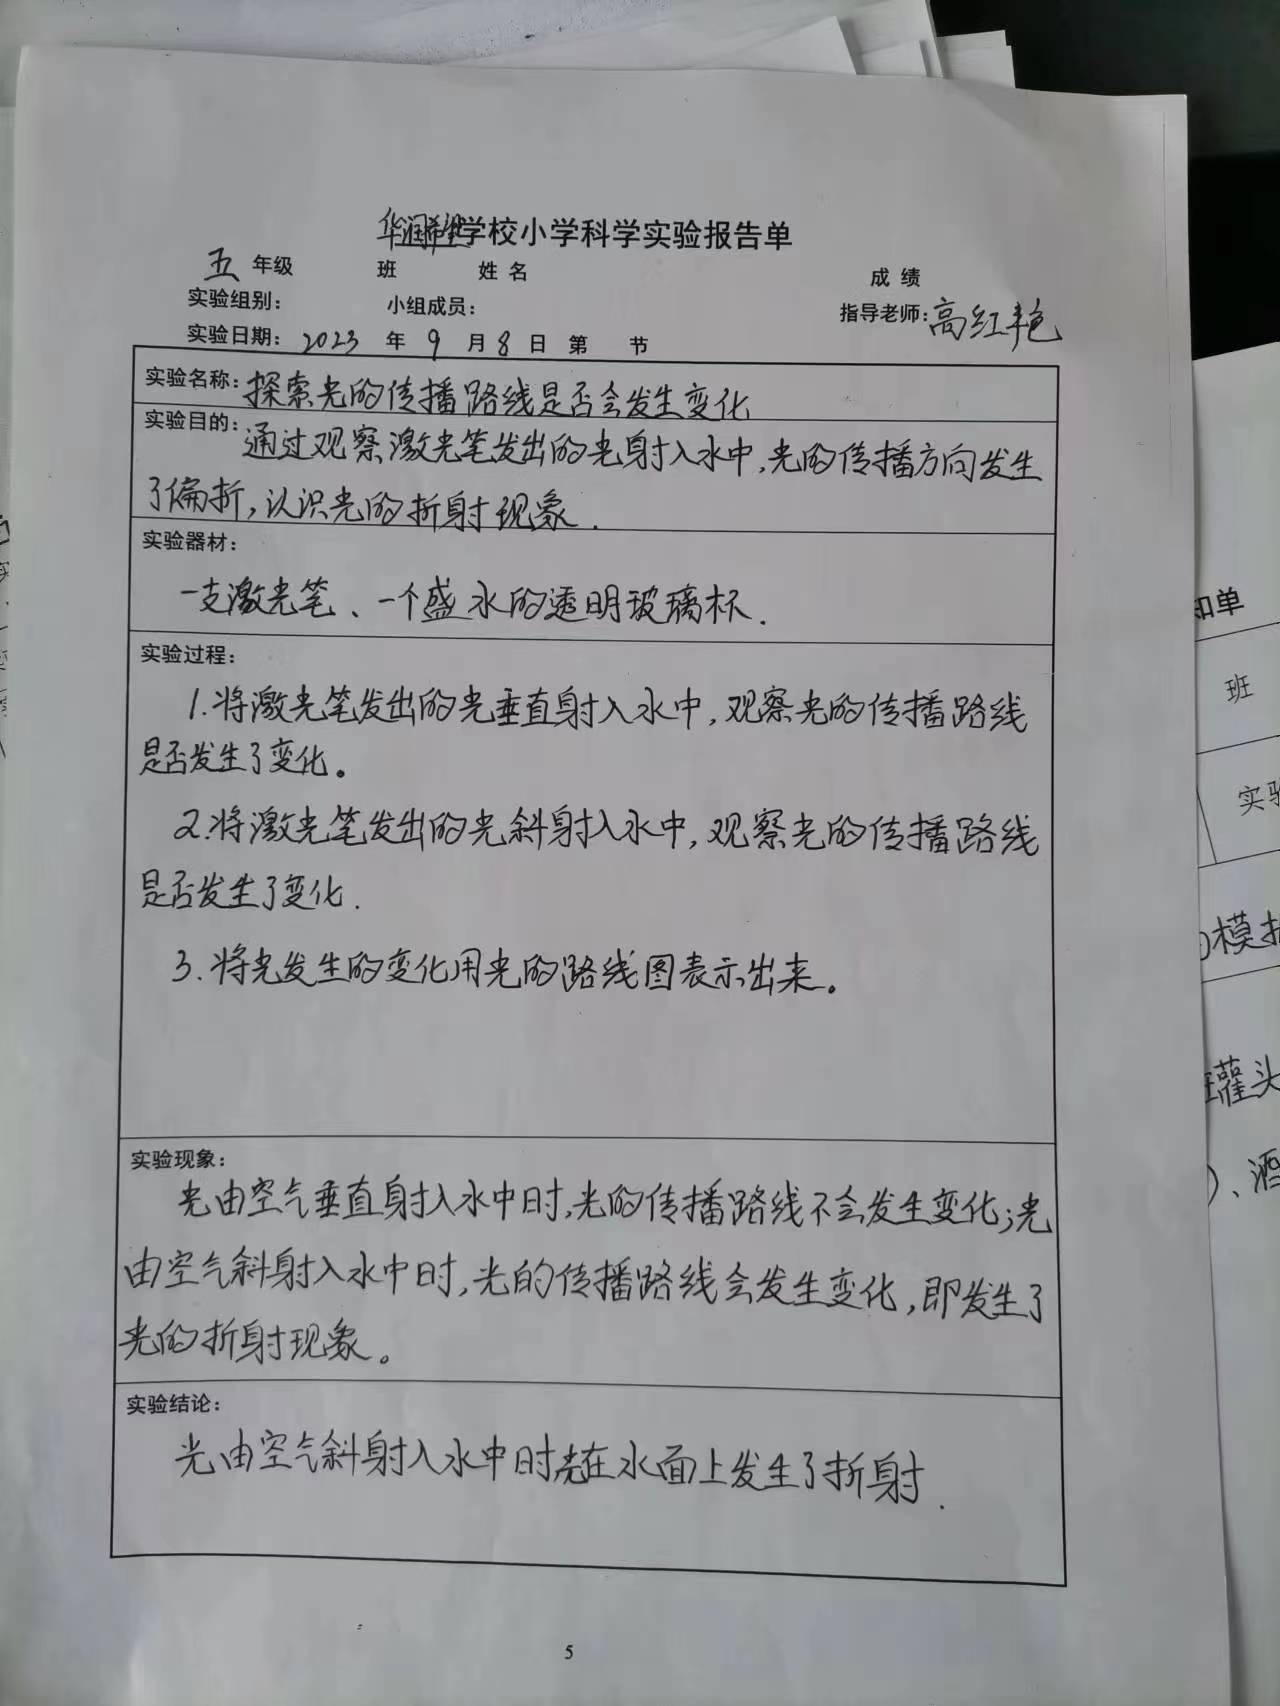 华润希望学校小学科学实验报告单
五 年级 班 姓 名 成 绩
实验组别： 小组成员： 指导老师：高红艳
实验日期：2023 年 9 月 8 日 第 节
实验名称：探索光的传播路线是否会发生变化
实验目的：通过观察激光笔发出的光射入水中，光的传播方向发生
了偏折，认识光的折射现象.
实验器材：
一支激光笔、一个盛水的透明玻璃杯.
实验过程：
1.将激光笔发出的光垂直射入水中，观察光的传播路线
是否发生了变化。
2.将激光笔发出的光斜射入水中，观察光的传播路线
是否发生了变化.
3.将光发生的变化用光的路线图表示出来。
实验现象：
光由空气垂直射入水中时，光的传播路线不会发生变化；光
由空气斜射入水中时，光的传播路线会发生变化，即发生了
光的折射现象。
实验结论：
光由空气斜射入水中时光在水面上发生了折射.
5
知单
班
实验
模拟
罐头
）、酒